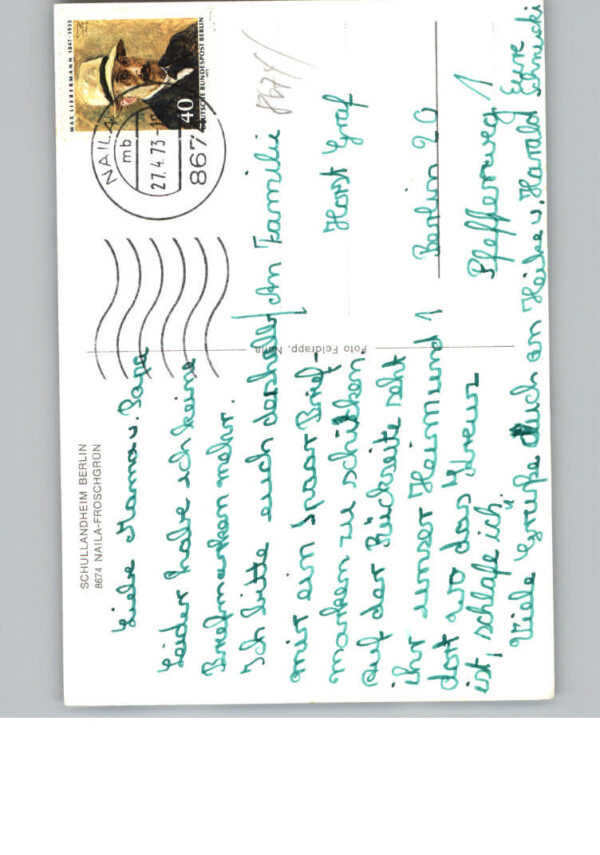 SCHULLANDHEIM BERLIN
8674 NAILA-FROSCHGRÜN
Liebe Mama u. Papa
Leider habe ich keine
Briefmarken mehr.
Ich bitte euch deshalb
mir ein Spaar Brief-
marken zu schikken.
auf der Rückseite seht
ihr unser Heim und
dort wo das Kreuz
ist, schlafe ich.
Viele Grüße auch an Heike u. Harald
Eure
Foto Feldrapp, Naila
MAX LIEBERMANN 1847-1935
DEUTSCHE BUNDESPOST BERLIN
40
NAILA
mb
27.4.73
867
8674
An Familie
Horst Graf
1 Berlin 20
Pfefferweg 1